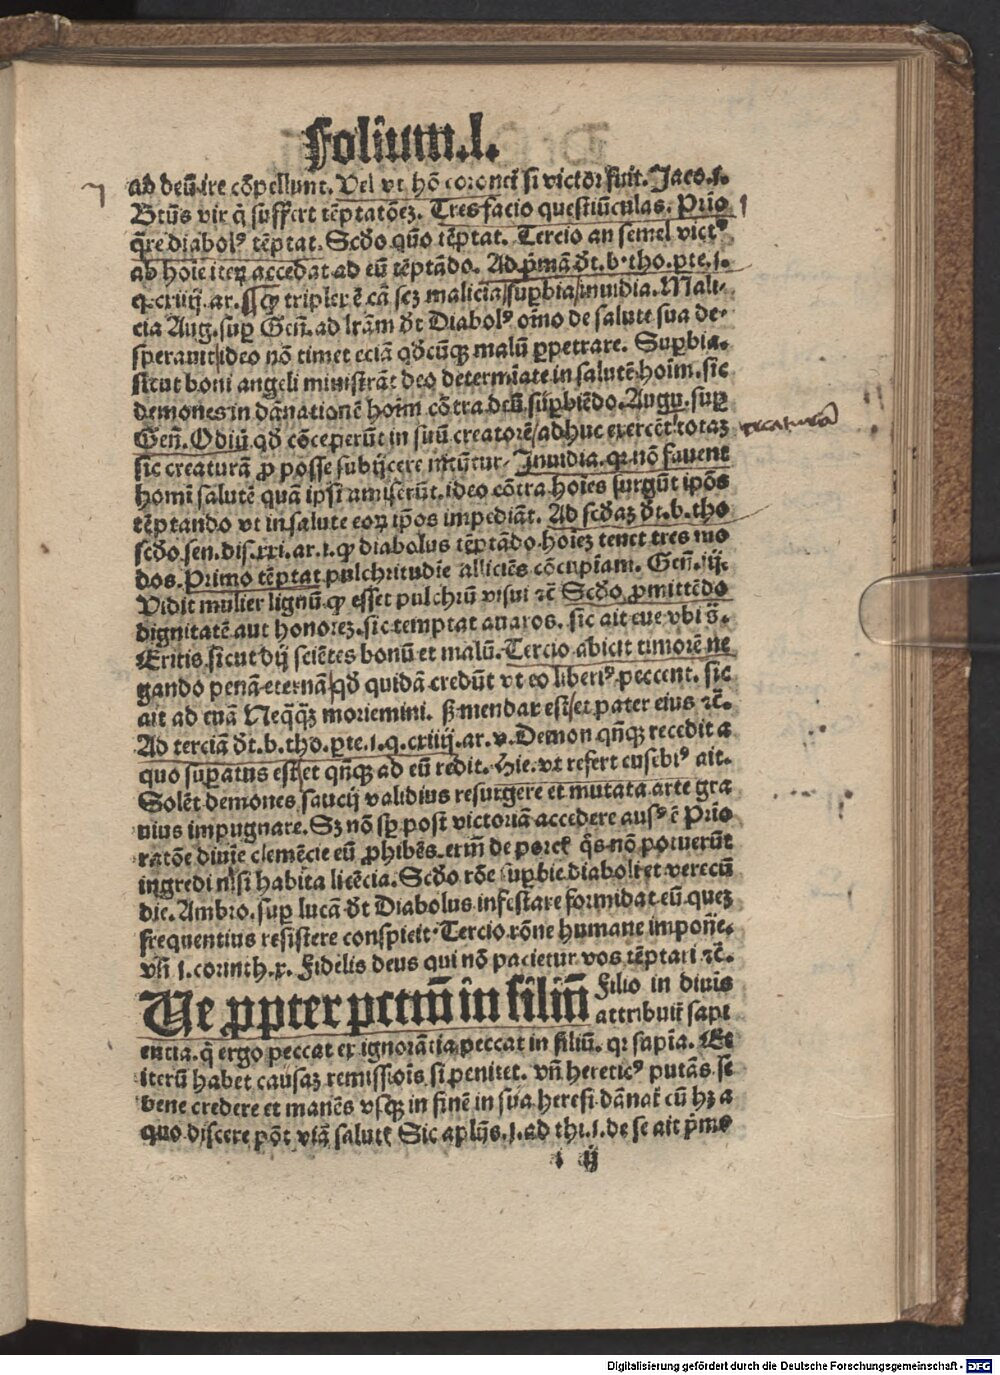 Folium.l.
ad deū ire cōpellunt. Vel vt hō coronet̄ si victor fuit. Jaco.i.
Btūs vir q̄ suffert tēptatōeꝫ. Tres facio questiūculas. Prīo
q̄re diabolꝰ tēptat. Scd̄o quō tēptat. Tercio an semel victꝰ
ab hoīe iteꝝ accedat ad eū tēptādo. Ad p̄mā d̄t.b.tho.ꝑte.i.
q.cxiiij.ar. ꝙ triplex ē cā scꝫ malicia/suꝑbia/inuidia. Mali-
cia Aug.suꝑ Gen̄.ad lr̄am d̄t Diabolꝰ oīno de salute sua de-
sperauit/ideo nō timet eciā qd̄cūqꝫ malū ꝑpetrare. Suꝑbia.
sicut boni angeli ministrāt deo determīate in salutē hoīm.sic
demones in dānationē hoīm cōtra deū suꝑbiēdo. Augu.suꝑ
Gen̄. Odiū qd̄ cōceperūt in suū creatorē/adhuc exercēt:totaꝫ
creaturā
sic creaturā ꝓ posse subijcere nitūtur. Inuidia.qꝛ nō fauent
homī salutē quā ipsi amiserūt.ideo cōtra hoīes surgūt ip̄os
tēptando vt in salute eoꝝ ip̄os impediāt. Ad scd̄aꝫ d̄t.b.tho
scd̄o.sen.dis.xxi.ar.i.ꝙ diabolus tēptādo hoīeꝫ tenet tres mo
dos. Primo tēptat pulchritudīe alliciēs cōcupīam. Gen̄.iij.
Vidit mulier lignū ꝙ esset pulchrū visui ⁊c̄ Scd̄o ꝓmittēdo
dignitatē aut honoreꝫ.sic temptat auaros. sic ait eue vbi s̄.
Eritis sicut dij sciētes bonū et malū. Tercio abicit timorē ne
gando penā eternā/qd̄ quidā credūt vt eo liberiꝰ peccent. sic
ait ad euā Neq̄q̄ꝫ moriemini. sꝫ mendax est/et pater eius ⁊c̄.
Ad terciā d̄t.b.tho.ꝑte.i.q.cxiiij.ar.v. Demon qn̄qꝫ recedit a
quo suꝑatus est/et qn̄qꝫ ad eū redit. Hic.vt refert eusebiꝰ ait.
Solēt demones saucij validius resurgere et mutata arte gra
uius impugnare. Sꝫ nō sꝑ post victoriā accedere ausꝰ ē Prīo
ratōe diuīe clemēcie eū ꝓhibēs. de porcꝭ q̄s nō potuerūt
ingredi nisi habita licēcia. Scd̄o rōe suꝑbie diaboli et verecū
die. Ambro.suꝑ lucā d̄t Diabolus infestare formidat eū queꝫ
frequentius resistere conspicit. Tercio rōne humane
vn̄ i.corinth.x. Fidelis deus qui nō pacietur vos tēptari ⁊c̄.
Ve ꝓpter pctm̄ in filiū Filio in diuīs
attribuit̄ sapi
entia.q̄ ergo peccat ex ignorātia peccat in filiū. qꝛ sapīa. Et
iterū habet causaꝫ remissiōis si penitet. vn̄ hereticꝰ putās se
bene credere et manēs vsqꝫ in finē in sua heresi dānat̄ cū hꝫ a
quo discere pōt viā salutꝭ Sic ap̄lus.i.ad thi.i.de se ait p̄mo
i ij
Digitalisierung gefördert durch die Deutsche Forschungsgemeinschaft - DFG